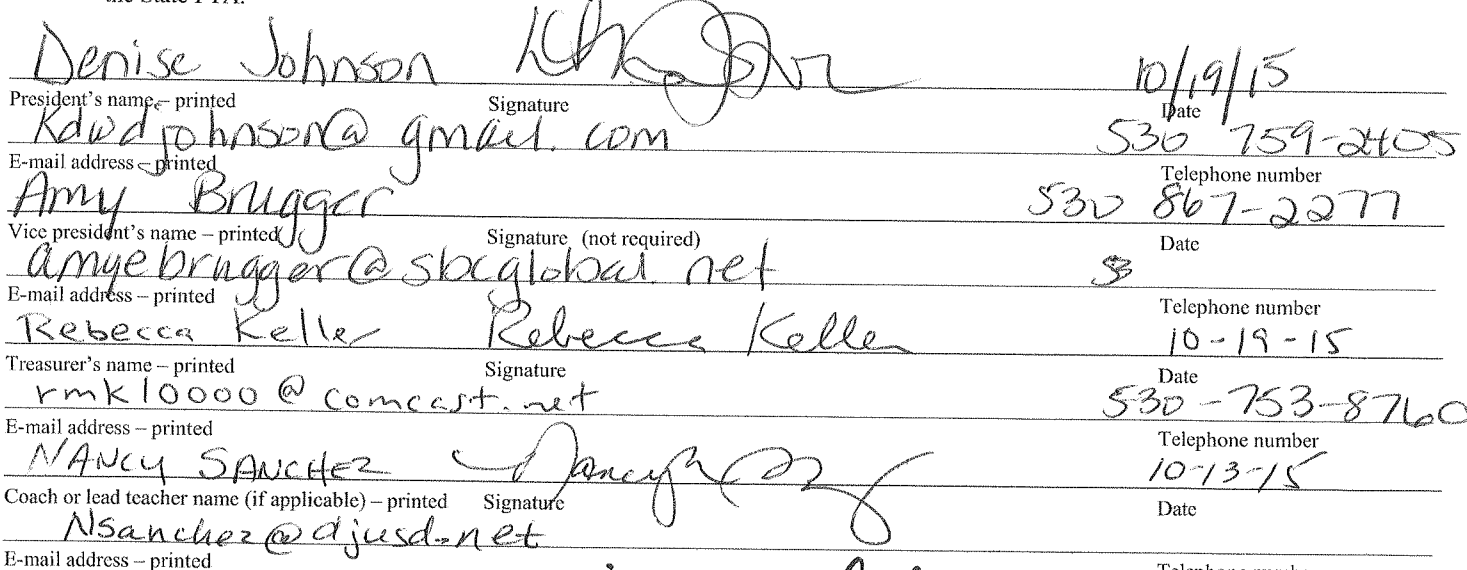 the State PTA.
Denise Johnson 10/19/15
President's name – printed Signature Date
kdwdjohnson@gmail.com 530 759-2405
E-mail address – printed Telephone number
Amy Brugger 530 867-2277
Vice president's name – printed Signature (not required) Date
amyebrugger@sbcglobal.net
E-mail address – printed Telephone number
Rebecca Keller Rebecca Keller 10-19-15
Treasurer's name – printed Signature Date
rmk10000@comcast.net 530-753-8760
E-mail address – printed Telephone number
NANCY SANCHEZ Nancy 10-13-15
Coach or lead teacher name (if applicable) – printed Signature Date
Nsanchez@djusd.net
E-mail address – printed Telephone number